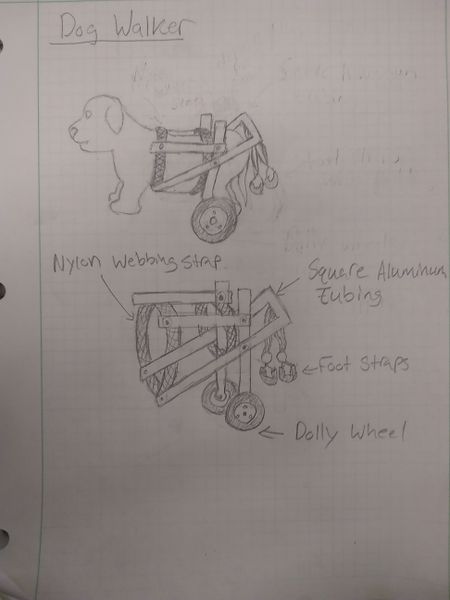 Dog Walker
Nylon Webbing Strap
Square Aluminum
Tubing
Foot Straps
Dolly Wheel